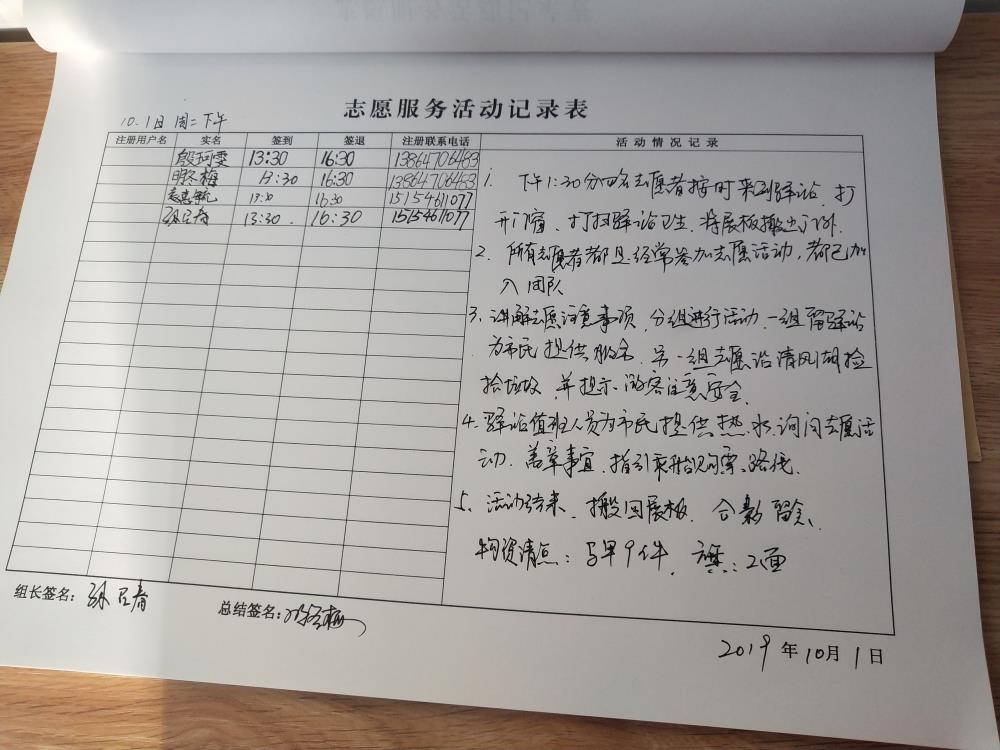 志愿服务活动记录表
10.1日 周二下午
注册用户名 实名 签到 签退 注册联系电话 活动情况记录
殷珂雯 13:30 16:30 13864706483
明冬梅 13:30 16:30 13864706483
13:30 16:30 15154611077
孙召春 13:30 16:30 15154611077
1. 下午1:30分四名志愿者按时来到驿站,打
开门窗,打扫驿站卫生,将展板搬出门外.
2. 所有志愿者都是经常参加志愿活动,都已加
入团队
3. 讲解志愿注意事项,分组进行活动.一组留驿站
为市民提供服务,另一组志愿沿清风湖捡
拾垃圾 并提示游客注意安全.
4. 驿站值班人员为市民提供热水.询问志愿活
动.盖章事宜.指引乘船购票、路线.
5. 活动结束、搬回展板、合影留念、
物资清点:马甲9件, 旗:2面
组长签名: 孙召春 总结签名: 明冬梅
2019年10月1日